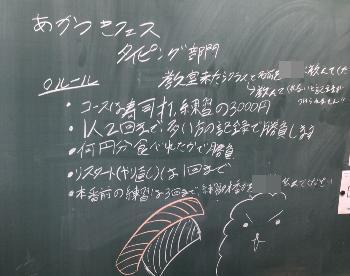 あかつきフェス
タイピング部門
○ルール
教室来たらクラスと名前を
・コースは寿司打、練習の3000円
・1人2回まで多い方の記録で勝負します
・何円分食べれたかで勝負
・リスタート(やり直し)は1回まで
・本番前の練習は3回まで